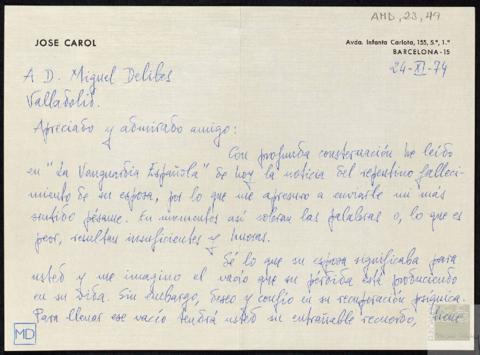 AMD, 23, 49
JOSE CAROL
Avda. Infanta Carlota, 155, 5.º, 1.ª
BARCELONA-15
24-XI-74
A D. Miguel Delibes
Valladolid.
Apreciado y admirado amigo:
Con profunda consternación he leído
en "La Vanguardia Española" de hoy la noticia del repentino falleci-
miento de su esposa, por lo que me apresuro a enviarle mi más
sentido pésame. En momentos así sobran las palabras o, lo que es
peor, resultan insuficientes y hueras.
Sé lo que su esposa significaba para
usted y me imagino el vacío que su pérdida está produciendo
en su vida. Sin embargo, deseo y confío en su recuperación psíquica.
Para llenar ese vacío tendrá usted su entrañable recuerdo, tiene
MD